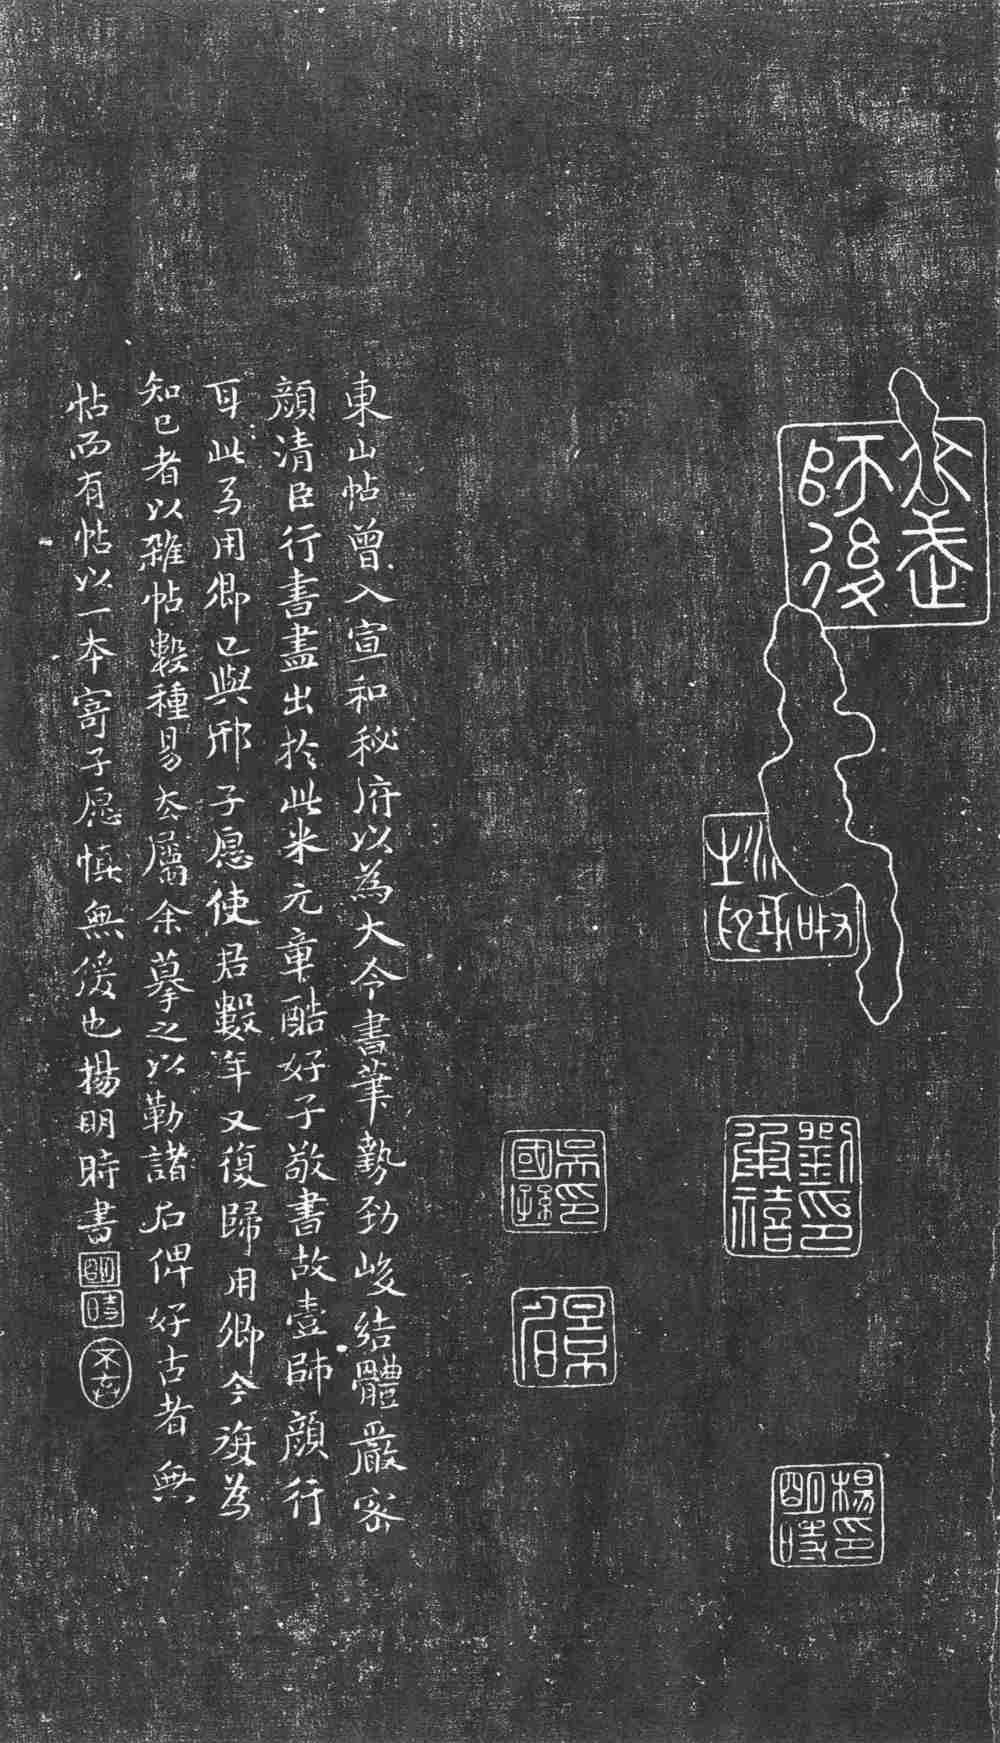 師後
劉印
承禧
吳印
國遜
楊印
明時
東山帖曾入宣和秘府以為大令書筆勢勁峻結體嚴密
顏清臣行書盡出於此米元章酷好子敬書故壹師顏行
耳此為用卿已與邢子愿使君數年又復歸用卿今旋為
知己者以雜帖數種易去屬余摹之以勒諸石俾好古者無
帖而有帖以一本寄子愿慎無後也楊明時書
明時
不棄